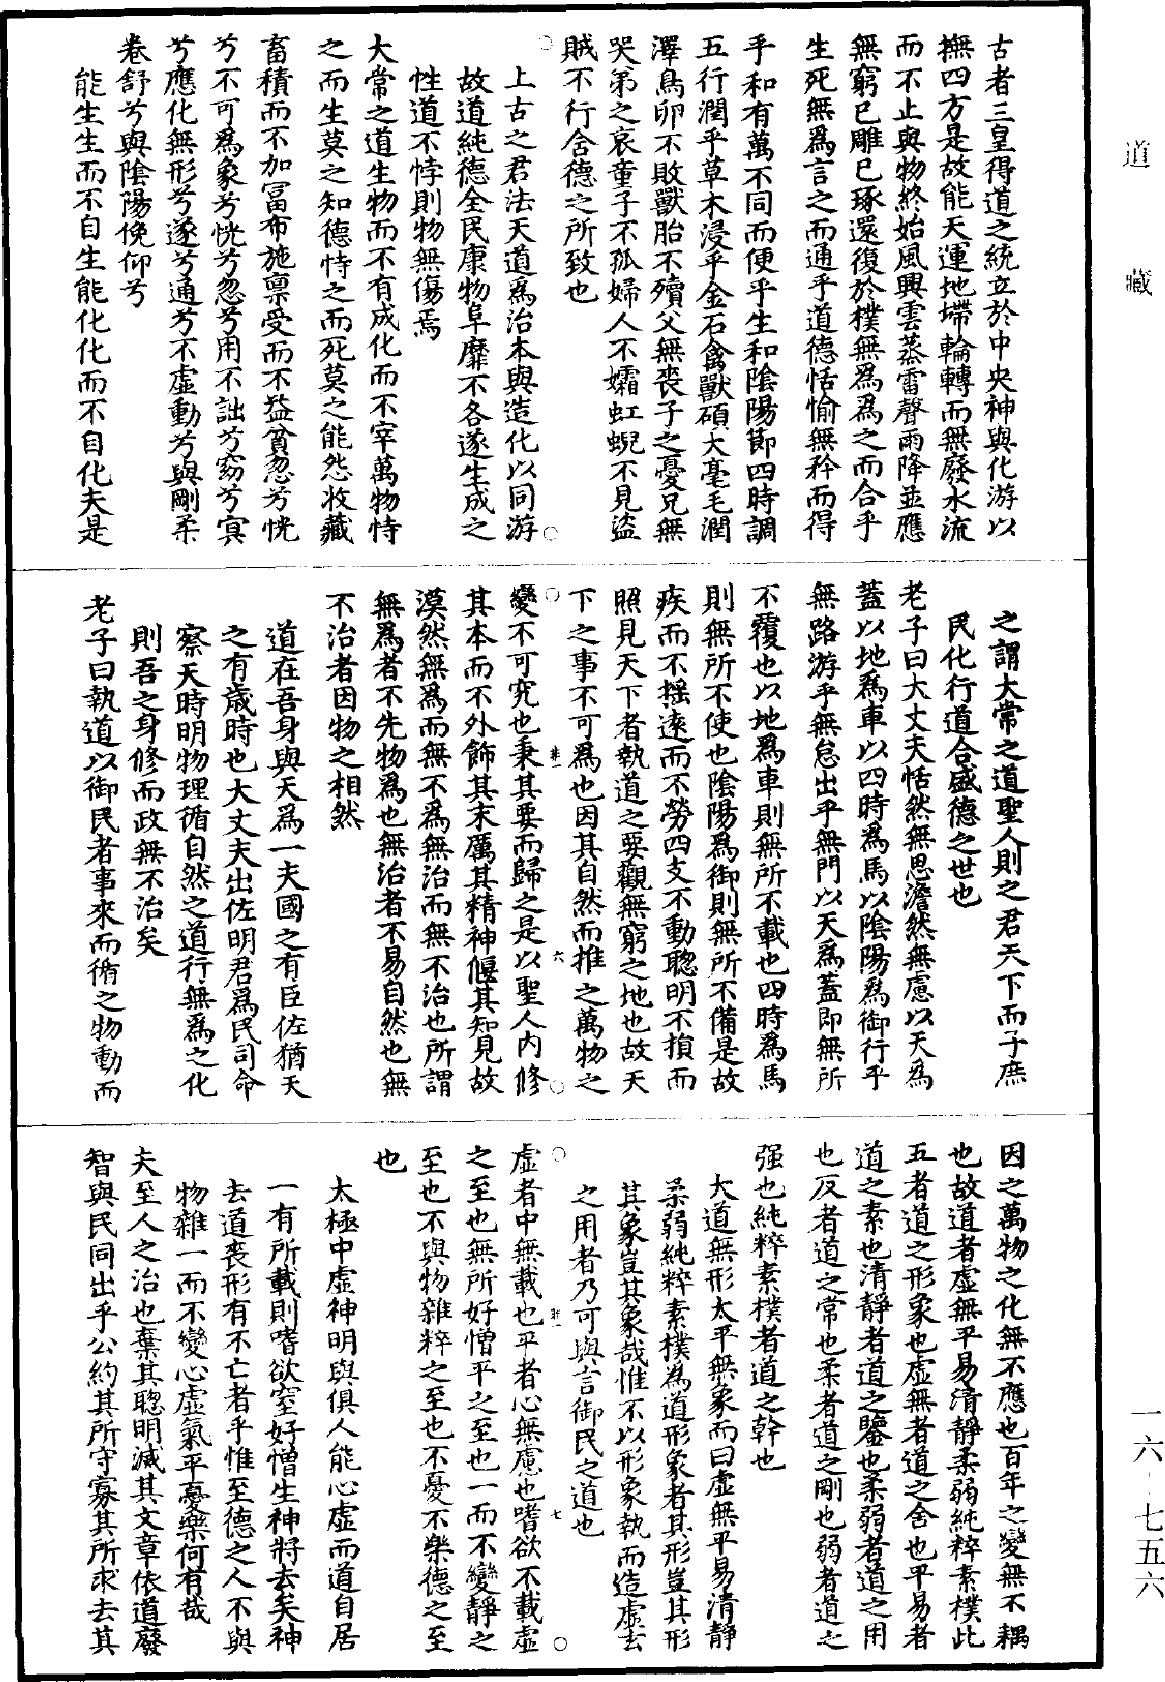 古者三皇得道之統立於中央神與化游以
撫四方是故能天運地墆輪轉而無廢水流
而不止與物終始風興雲蒸雷聲雨降並應
無窮已雕已琢還復於樸無爲爲之而合乎
生死無爲言之而通乎道德恬愉無矜而得
乎和有萬不同而便乎生和陰陽節四時調
五行潤乎草木浸乎金石禽獸碩大毫毛潤
澤鳥卵不敗獸胎不殰父無喪子之憂兄無
哭弟之哀童子不孤婦人不孀虹蜺不見盜
賊不行含德之所致也
上古之君法天道爲治本與造化以同游
故道純德全民康物阜靡不各遂生成之
性道不悖則物無傷焉
大常之道生物而不有成化而不宰萬物恃
之而生莫之知德恃之而死莫之能怨收藏
畜積而不加富布施禀受而不益貧忽兮恍
兮不可爲象兮恍兮忽兮用不詘兮窈兮冥
兮應化無形兮遂兮通兮不虛動兮與剛柔
卷舒兮與陰陽俛仰兮
能生生而不自生能化化而不自化夫是
之謂大常之道聖人則之君天下而子庶
民化行道合盛德之世也
老子曰大丈夫恬然無思澹然無慮以天爲
蓋以地爲車以四時爲馬以陰陽爲御行乎
無路游乎無怠出乎無門以天爲蓋即無所
不覆也以地爲車則無所不載也四時爲馬
則無所不使也陰陽爲御則無所不備是故
疾而不摇遠而不勞四支不動聰明不損而
照見天下者執道之要觀無窮之地也故天
下之事不可爲也因其自然而推之萬物之
六
變不可究也秉其要而歸之是以聖人内修
其本而不外飾其末厲其精神偃其知見故
漠然無爲而無不爲無治而無不治也所謂
無爲者不先物爲也無治者不易自然也無
不治者因物之相然
道在吾身與天爲一夫國之有臣佐猶天
之有歲時也大丈夫出佐明君爲民司命
察天時明物理循自然之道行無爲之化
則吾之身修而政無不治矣
老子曰執道以御民者事來而循之物動而
因之萬物之化無不應也百年之變無不耦
也故道者虛無平易清靜柔弱純粹素樸此
五者道之形象也虛無者道之舍也平易者
道之素也清靜者道之鑒也柔弱者道之用
也反者道之常也柔者道之剛也弱者道之
强也純粹素樸者道之幹也
大道無形太平無象而曰虛無平易清靜
柔弱純粹素樸爲道形象者其形豈其形
其象豈其象哉惟不以形象執而造虛去
之用者乃可與言御民之道也
七
虛者中無載也平者心無慮也嗜欲不載虛
之至也無所好憎平之至也一而不變靜之
至也不與物雜粹之至也不憂不樂德之至
也
太極中虛神明與俱人能心虛而道自居
一有所載則嗜欲窒好憎生神將去矣神
去道喪形有不亡者乎惟至德之人不與
物雜一而不變心虛氣平憂樂何有哉
夫至人之治也棄其聰明滅其文章依道廢
智與民同出乎公約其所守寡其所求去其
道 藏
一六-七五六